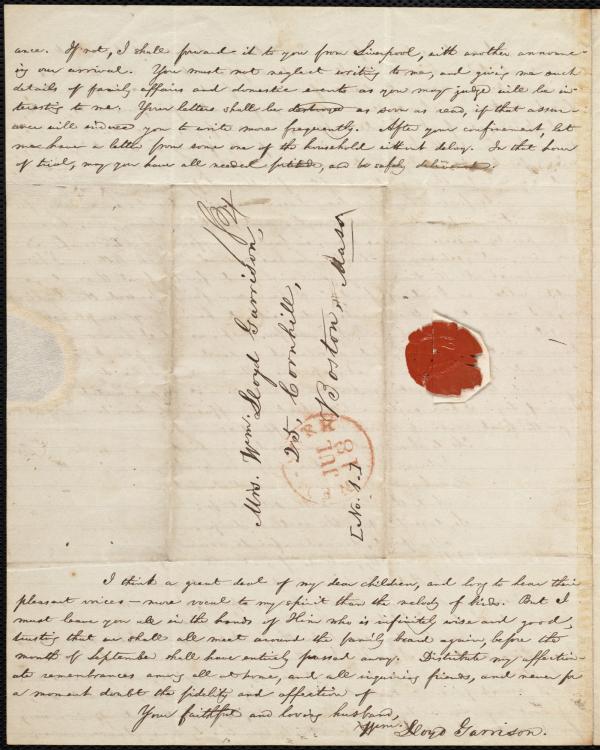 ance. If not, I shall forward it to you from Liverpool, with another announc-
ing our arrival. You must not neglect writing to me, and giving me such
details of family affairs and domestic events as you may judge will be in-
teresting to me. Your letters shall be destroyed as soon as read, if that assur-
ance will induce you to write more frequently. After your confinement, let
me have a letter from some one of the household without delay. In that hour
of trial, may you have all needed fortitude, and be safely delivered.
Mrs. Wm. Lloyd Garrison,
25, Cornhill,
Boston,
Mass.
[No. 1.]
JUL
18
I think a great deal of my dear children, and long to hear their
pleasant voices—more vocal to my spirit than the melody of birds. But I
must leave you all in the hands of Him who is infinitely wise and good,
trusting that we shall all meet around the family board again, before the
month of September shall have entirely passed away. Distribute my affection-
ate remembrances among all at home, and all inquiring friends, and never for
a moment doubt the fidelity and affection of
Your faithful and loving husband,
Wm. Lloyd Garrison.